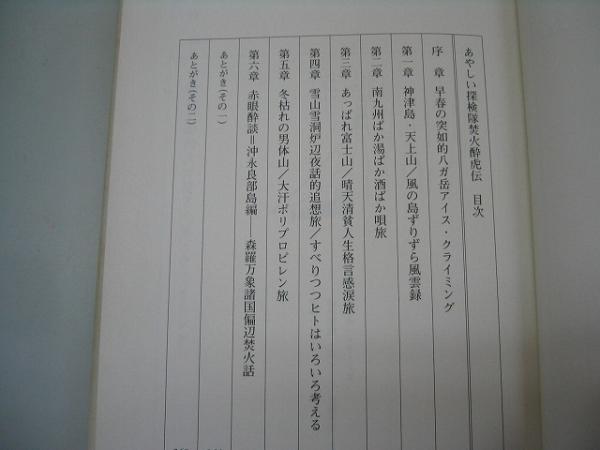 あやしい探検隊焚火酔虎伝　目次
序　章　早春の突如的八ガ岳アイス・クライミング
第一章　神津島・天上山／風の島ずりずら風雲録
第二章　南九州ばか湯ばか酒ばか唄旅
第三章　あっぱれ富士山／晴天清貧人生格言感涙旅
第四章　雪山雪洞炉辺夜話的追想旅／すべりつつヒトはいろいろ考える
第五章　冬枯れの男体山／大汗ポリプロピレン旅
第六章　赤眼酔談＝沖永良部島編――森羅万象諸国偏辺焚火話
あとがき（その一）
あとがき（その二）